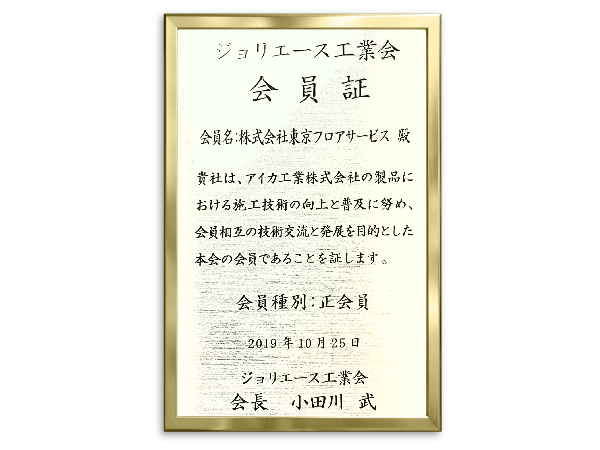 ジョリエース工業会
会員証
会員名:株式会社東京フロアサービス 殿
貴社は、アイカ工業株式会社の製品に
おける施工技術の向上と普及に努め、
会員相互の技術交流と発展を目的とした
本会の会員であることを証します。
会員種別:正会員
2019年10月25日
ジョリエース工業会
会長 小田川 武